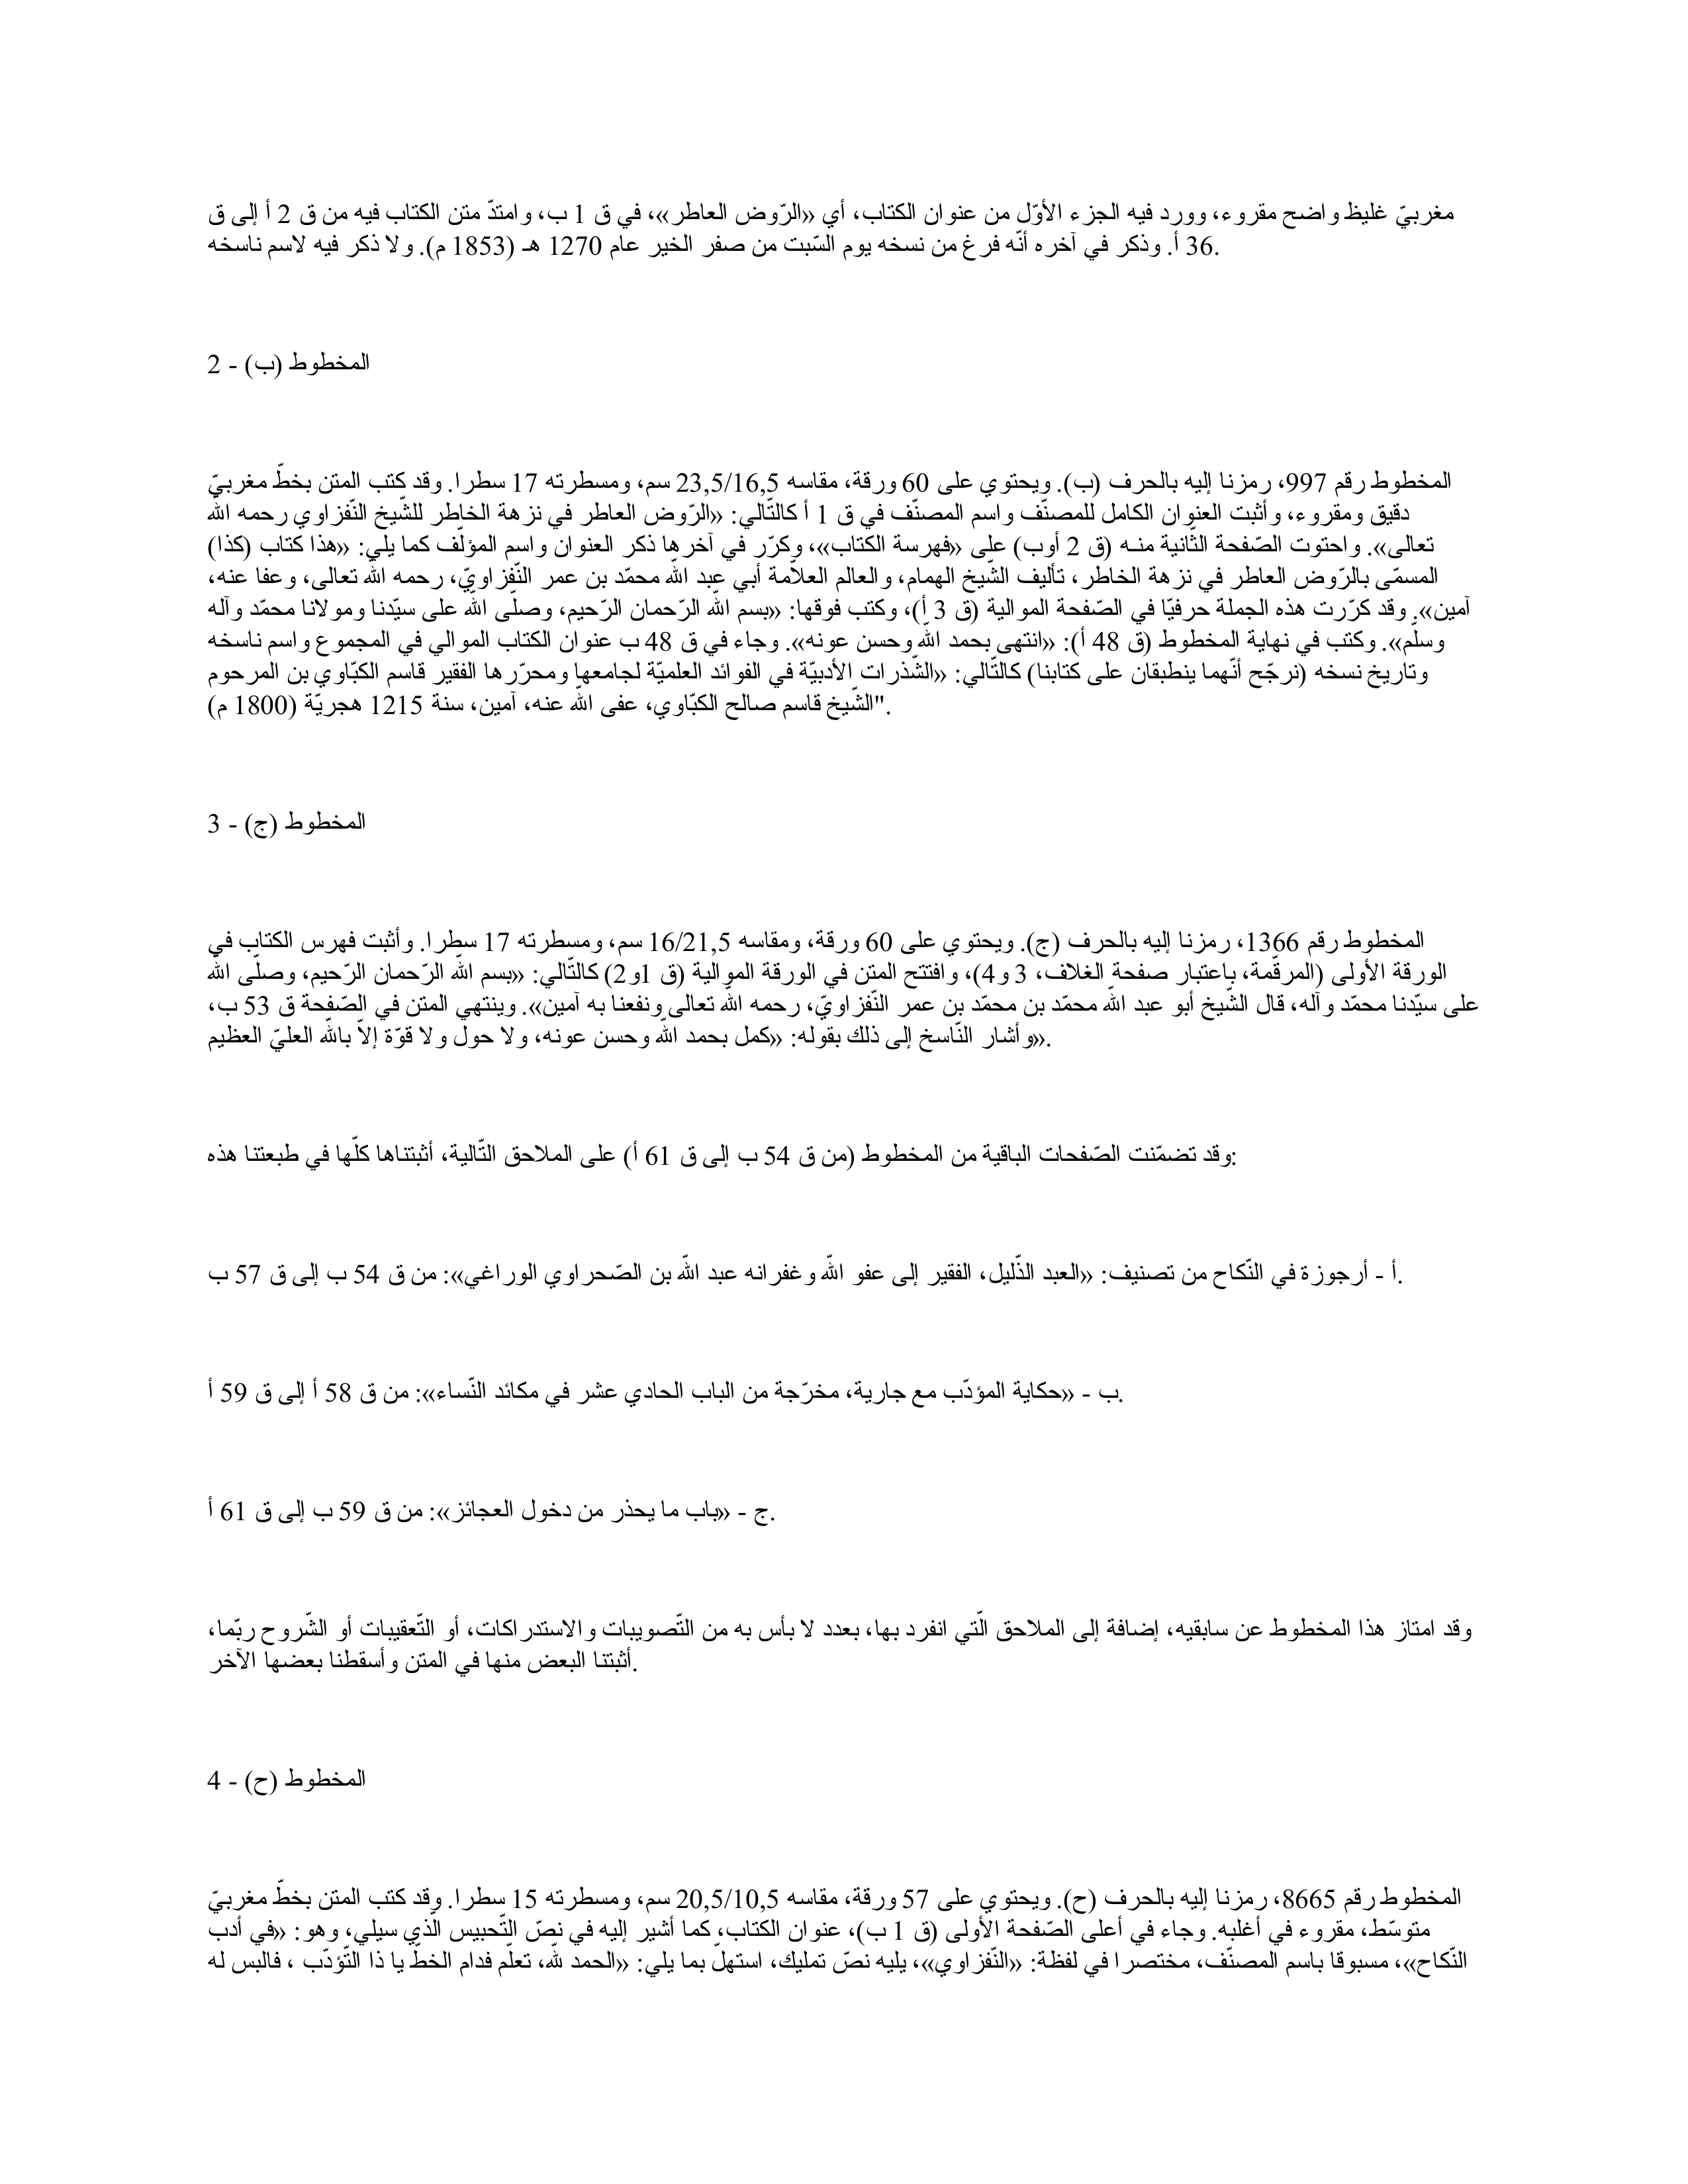 مغربيّ غليظ واضح مقروء، وورد فيه الجزء الأوّل من عنوان الكتاب، أي «الرّوض العاطر»، في ق 1 ب، وامتدّ متن الكتاب فيه من ق 2 أ إلى ق
36 أ. وذكر في آخره أنّه فرغ من نسخه يوم السّبت من صفر الخير عام 1270 هـ (1853 م). ولا ذكر فيه لاسم ناسخه.
2 - المخطوط (ب)
المخطوط رقم 997، رمزنا إليه بالحرف (ب). ويحتوي على 60 ورقة، مقاسه 23,5/16,5 سم، ومسطرته 17 سطرا. وقد كتب المتن بخطّ مغربيّ
دقيق ومقروء، وأثبت العنوان الكامل للمصنّف واسم المصنّف في ق 1 أ كالتّالي: «الرّوض العاطر في نزهة الخاطر للشّيخ النّفزاوي رحمه الله
تعالى». واحتوت الصّفحة الثّانية منـه (ق 2 أوب) على «فهرسة الكتاب»، وكرّر في آخرها ذكر العنوان واسم المؤلّف كما يلي: «هذا كتاب (كذا)
المسمّى بالرّوض العاطر في نزهة الخاطر، تأليف الشّيخ الهمام، والعالم العلاّمة أبي عبد الله محمّد بن عمر النّفزاويّ، رحمه الله تعالى، وعفا عنه،
آمين». وقد كرّرت هذه الجملة حرفيّا في الصّفحة الموالية (ق 3 أ)، وكتب فوقها: «بسم الله الرّحمان الرّحيم، وصلّى الله على سيّدنا ومولانا محمّد وآله
وسلّم». وكتب في نهاية المخطوط (ق 48 أ): «انتهى بحمد الله وحسن عونه». وجاء في ق 48 ب عنوان الكتاب الموالي في المجموع واسم ناسخه
وتاريخ نسخه (نرجّح أنّهما ينطبقان على كتابنا) كالتّالي: «الشّذرات الأدبيّة في الفوائد العلميّة لجامعها ومحرّرها الفقير قاسم الكبّاوي بن المرحوم
الشّيخ قاسم صالح الكبّاوي، عفى الله عنه، آمين، سنة 1215 هجريّة (1800 م)".
3 - المخطوط (ج)
المخطوط رقم 1366، رمزنا إليه بالحرف (ج). ويحتوي على 60 ورقة، ومقاسه 16/21,5 سم، ومسطرته 17 سطرا. وأثبت فهرس الكتاب في
الورقة الأولى (المرقّمة، باعتبار صفحة الغلاف، 3 و4)، وافتتح المتن في الورقة الموالية (ق 1و2) كالتّالي: «بسم الله الرّحمان الرّحيم، وصلّى الله
على سيّدنا محمّد وآله، قال الشّيخ أبو عبد الله محمّد بن محمّد بن عمر النّفزاويّ، رحمه الله تعالى ونفعنا به آمين». وينتهي المتن في الصّفحة ق 53 ب،
وأشار النّاسخ إلى ذلك بقوله: «كمل بحمد الله وحسن عونه، ولا حول ولا قوّة إلاّ بالله العليّ العظيم».
وقد تضمّنت الصّفحات الباقية من المخطوط (من ق 54 ب إلى ق 61 أ) على الملاحق التّالية، أثبتناها كلّها في طبعتنا هذه:
أ - أرجوزة في النّكاح من تصنيف: «العبد الذّليل، الفقير إلى عفو الله وغفرانه عبد الله بن الصّحراوي الوراغي»: من ق 54 ب إلى ق 57 ب.
ب - «حكاية المؤدّب مع جارية، مخرّجة من الباب الحادي عشر في مكائد النّساء»: من ق 58 أ إلى ق 59 أ.
ج - «باب ما يحذر من دخول العجائز»: من ق 59 ب إلى ق 61 أ.
وقد امتاز هذا المخطوط عن سابقيه، إضافة إلى الملاحق الّتي انفرد بها، بعدد لا بأس به من التّصويبات والاستدراكات، أو التّعقيبات أو الشّروح ربّما،
أثبتنا البعض منها في المتن وأسقطنا بعضها الآخر.
4 - المخطوط (ح)
المخطوط رقم 8665، رمزنا إليه بالحرف (ح). ويحتوي على 57 ورقة، مقاسه 20,5/10,5 سم، ومسطرته 15 سطرا. وقد كتب المتن بخطّ مغربيّ
متوسّط، مقروء في أغلبه. وجاء في أعلى الصّفحة الأولى (ق 1 ب)، عنوان الكتاب، كما أشير إليه في نصّ التّحبيس الّذي سيلي، وهو: «في أدب
النّكاح»، مسبوقا باسم المصنّف، مختصرا في لفظة: «النّفزاوي»، يليه نصّ تمليك، استهلّ بما يلي: «الحمد لله، تعلّم فدام الخطّ يا ذا التّؤدّب ، فالبس له